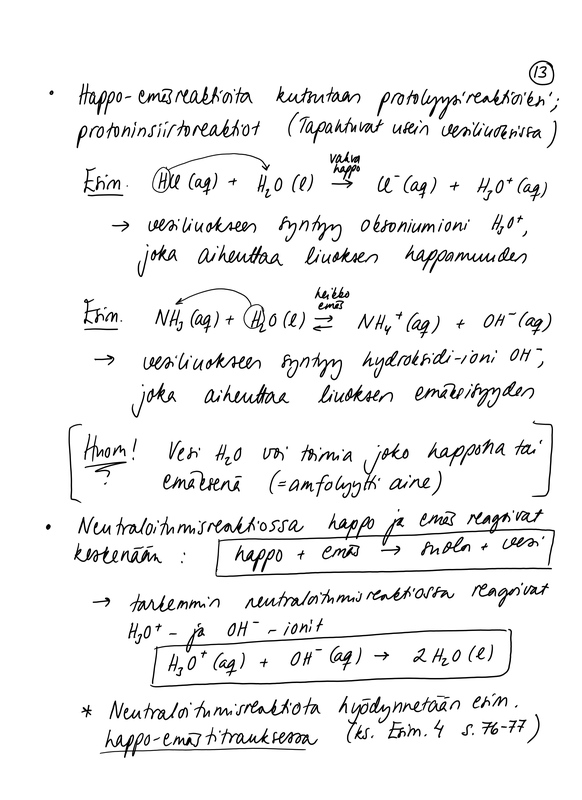 13
• Happo-emäsreaktioita kutsutaan protolyysireaktioiksi;
protoninsiirtoreaktiot (Tapahtuvat usein vesiliuoksissa)
vahva
happo
Esim. HCl (aq) + H₂O (l) → Cl⁻ (aq) + H₃O⁺ (aq)
→ vesiliuokseen syntyy oksoniumioni H₃O⁺,
joka aiheuttaa liuoksen happamuuden
heikko
emäs
Esim. NH₃ (aq) + H₂O (l) ⇌ NH₄⁺ (aq) + OH⁻ (aq)
→ vesiliuokseen syntyy hydroksidi-ioni OH⁻,
joka aiheuttaa liuoksen emäksisyyden
Huom! Vesi H₂O voi toimia joko happona tai
? emäksenä (=amfolyytti aine)
• Neutraloitumisreaktiossa happo ja emäs reagoivat
keskenään : happo + emäs → suola + vesi
→ tarkemmin neutraloitumisreaktiossa reagoivat
H₃O⁺ - ja OH⁻ - ionit
H₃O⁺ (aq) + OH⁻ (aq) → 2 H₂O (l)
* Neutraloitumisreaktiota hyödynnetään esim.
happo-emästitrauksessa (ks. Esim. 4 s. 76-77)